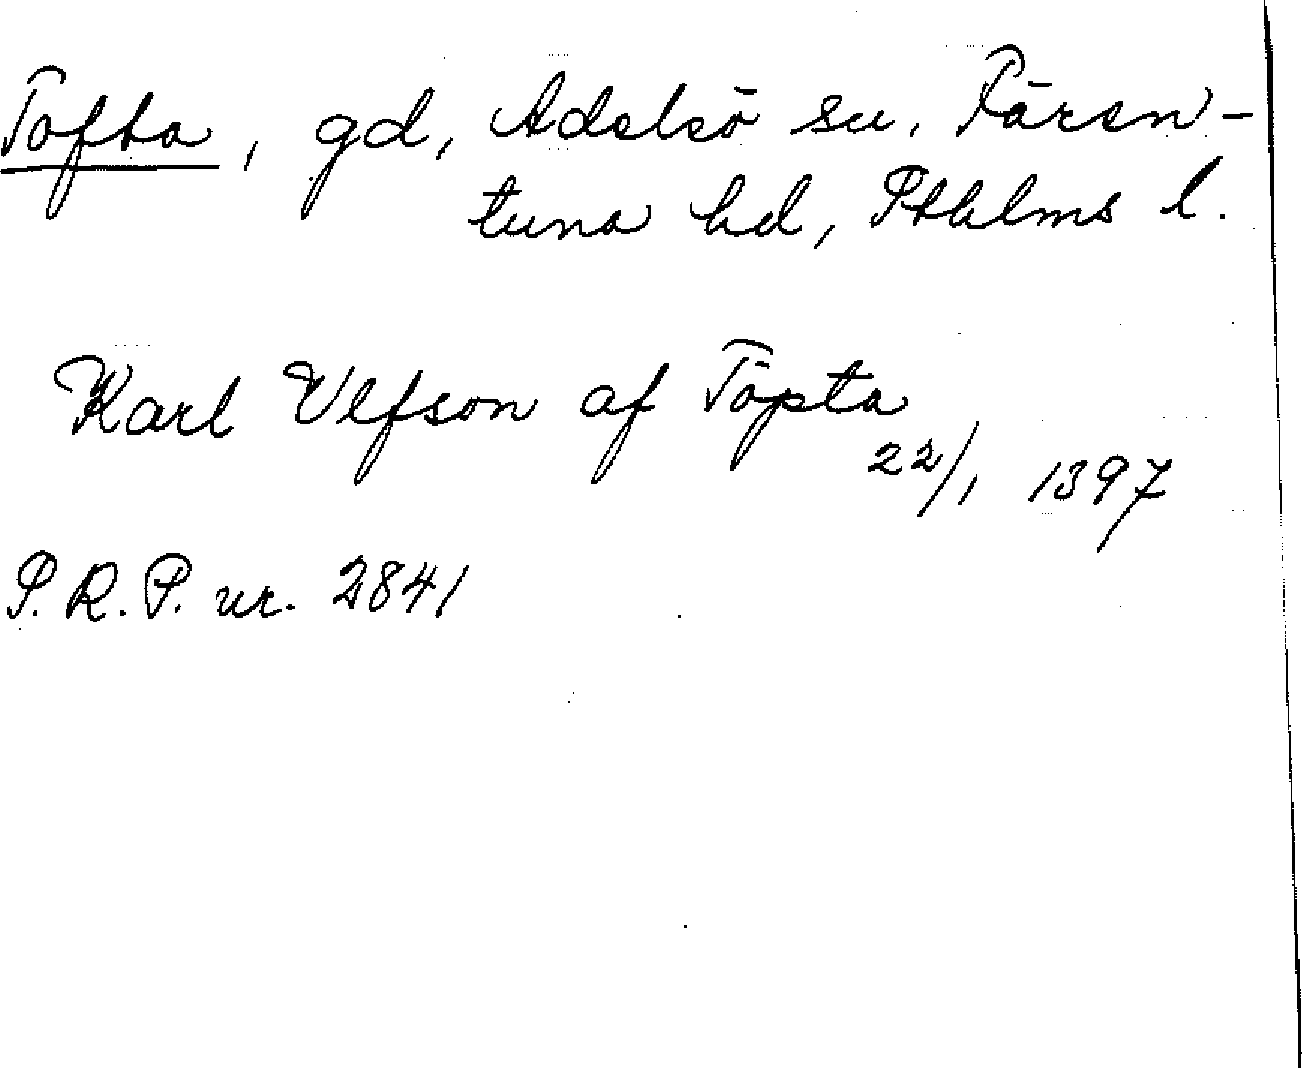 Tofta, gd, Adelsö sn, Fären-
tuna hd, Sthlms l.
Karl Ulfson af Töpta
22/1 1397
S. R. P. nr. 2841